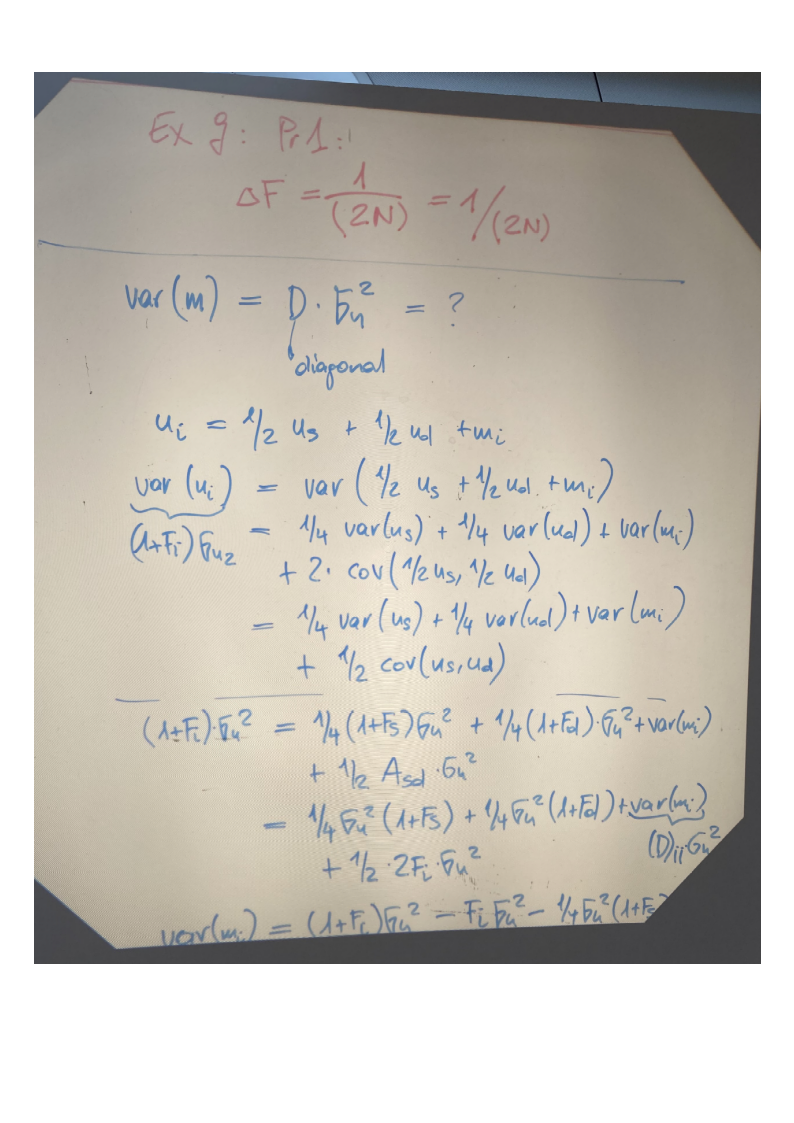 Ex 9: Pr1:
ΔF = 1/(2N) = 1/(2N)
var(m) = D · σu² = ?
diagonal
ui = 1/2 us + 1/2 ud + mi
var (ui) = var (1/2 us + 1/2 ud + mi)
(1+Fi) σu2 = 1/4 var(us) + 1/4 var(ud) + var(mi)
+ 2· cov(1/2 us, 1/2 ud)
= 1/4 var(us) + 1/4 var(ud) + var(mi)
+ 1/2 cov(us, ud)
(1+Fi)·σu² = 1/4 (1+Fs) σu² + 1/4 (1+Fd)·σu² + var(mi)
+ 1/2 Asd · σu²
= 1/4 σu² (1+Fs) + 1/4 σu² (1+Fd) + var(mi)
(D)ii · σu²
+ 1/2 · 2Fi · σu²
var(mi) = (1+Fi) σu² − Fi σu² − 1/4 σu² (1+Fs)